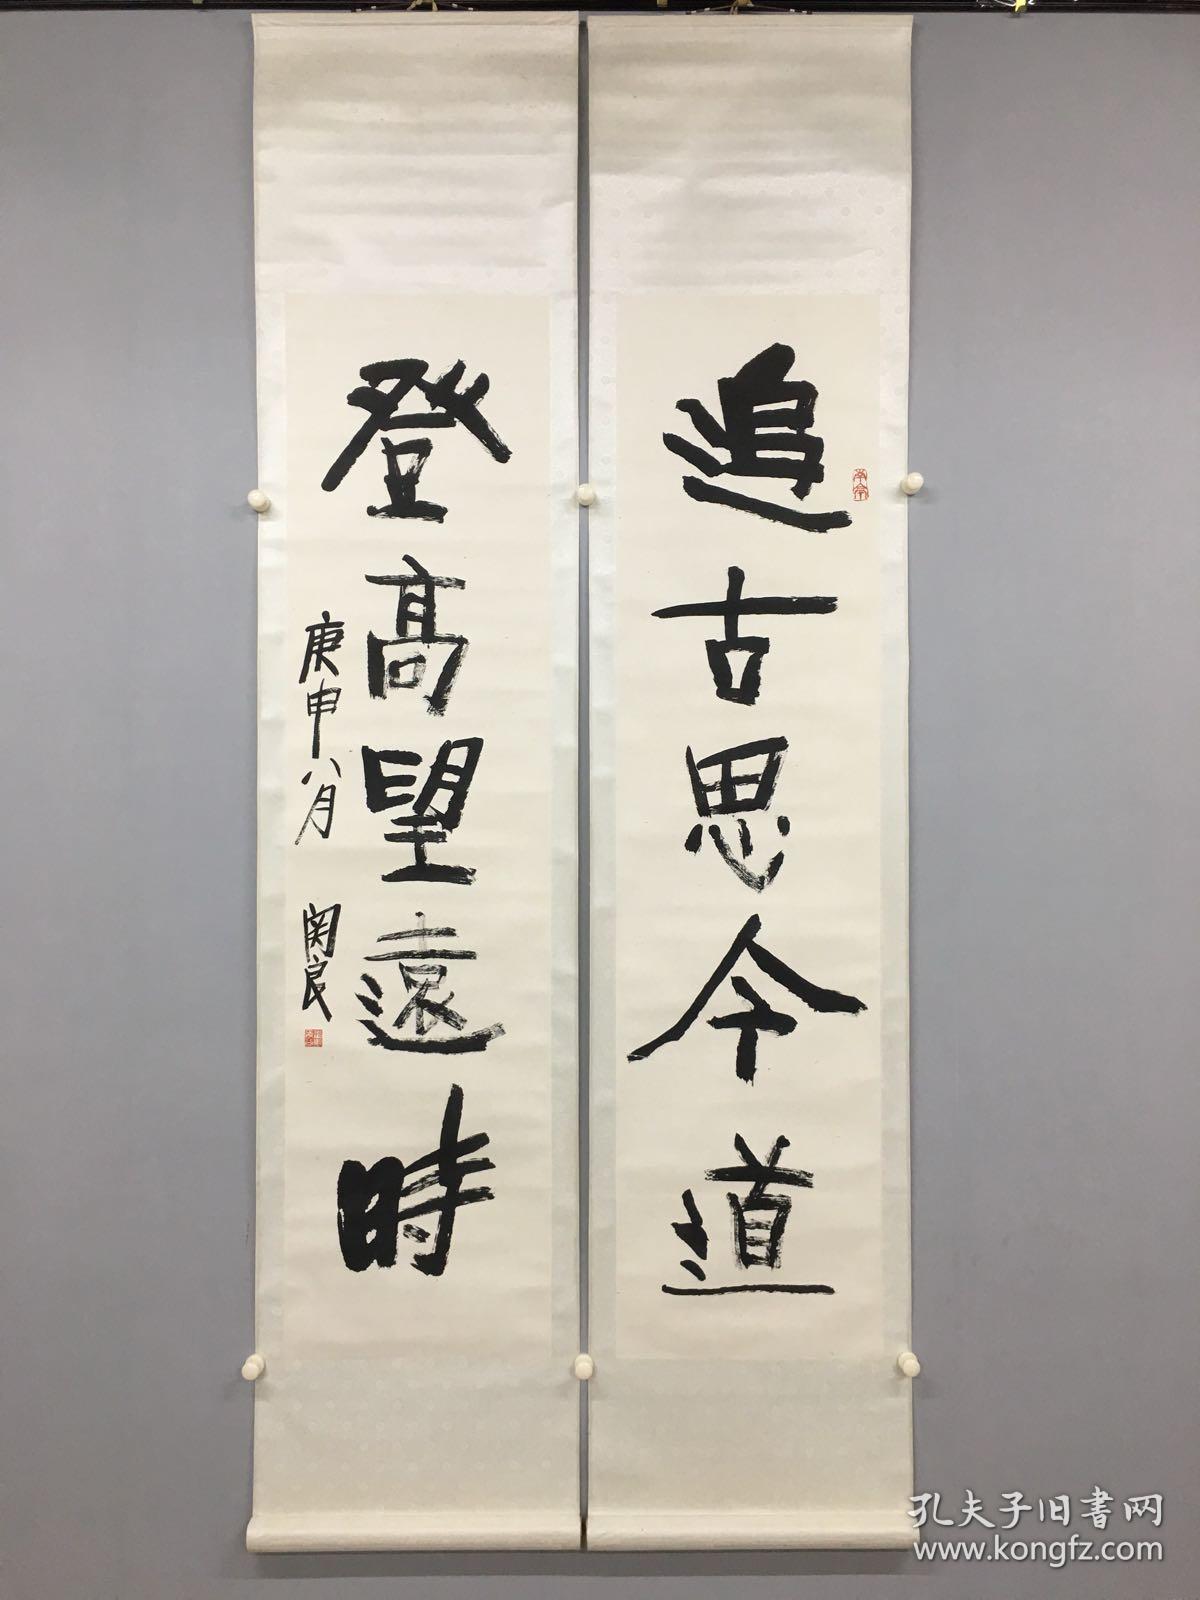 追古思今道
登高望遠時
庚申八月 関良
孔夫子旧書网
www.kongfz.com